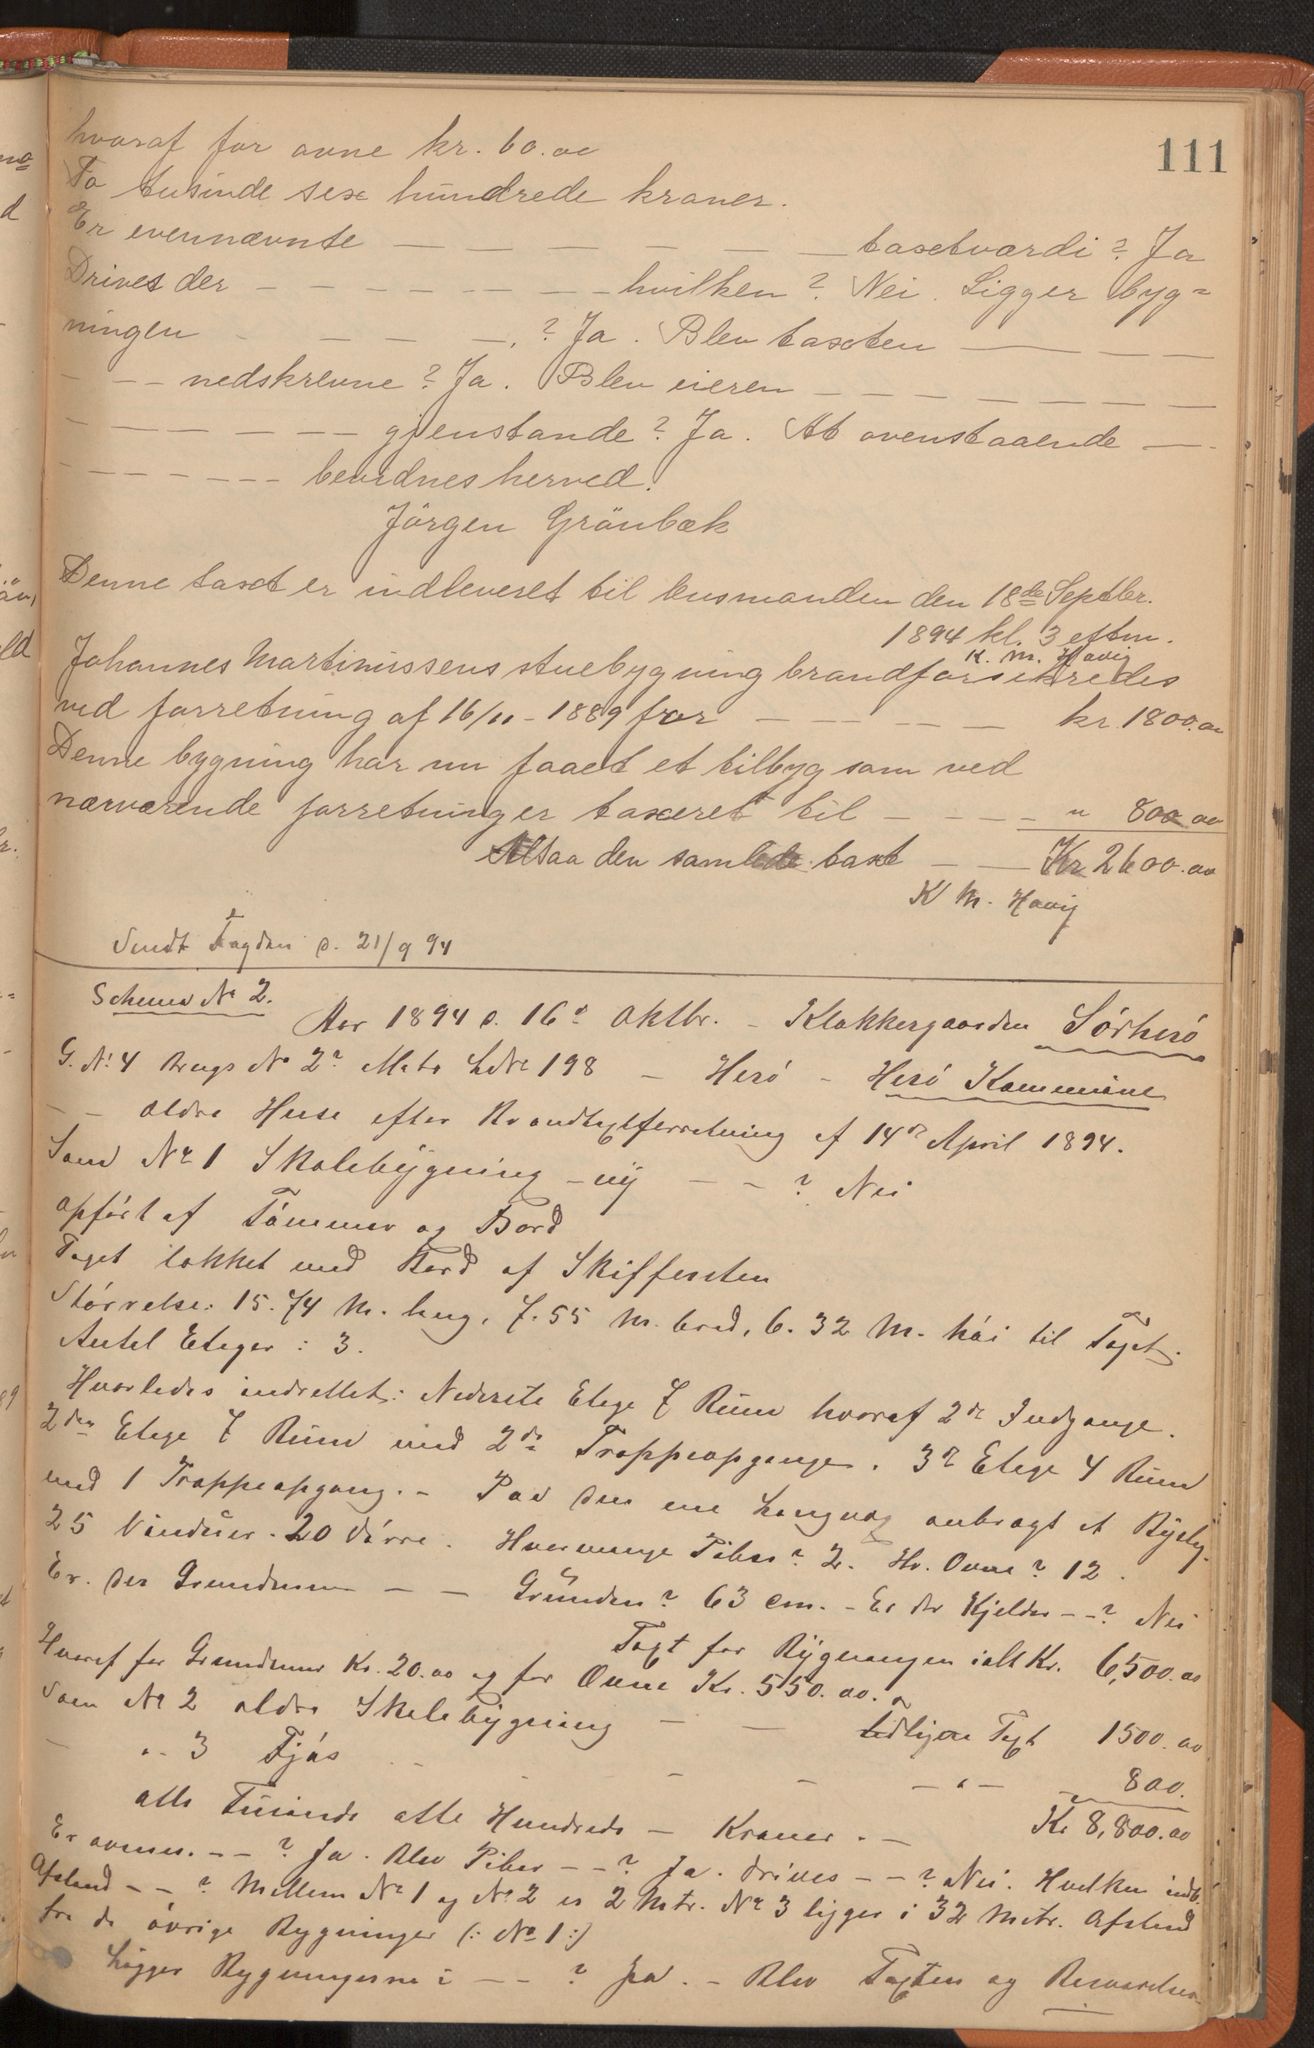 111
hvoraf for ovne kr. 60.00
To tusinde sex hundrede kroner.
Er evennævnte — — — — — taxtværdi? Ja
Drives der — — — — — — — hvilken? Nei. Ligger byg=
ningen — — — — —? Ja. Blev taxten — — — —
— — — nedskrevne? Ja. Blev eieren — — — — — — —
— — — — — — — gjenstande? Ja. At ovenstaaende — —
— — — — — bevidnes herved.
Jörgen Grönbæk
Denne taxt er indleveret til lensmanden den 18de Septbr.
1894 kl. 3 eftm.
K. M. Havig
Johannes Martinussens stuebygning brandforsikredes
ved forretning af 16/11 - 1889 for — — — — — kr. 1800.00
Denne bygning har nu faaet et tilbyg som ved
nærværende forretning er taxeret til — — — — " 800.00
Altsaa den samlede taxt — — Kr 2600.00
K M. Havig
Sendt Fogden d. 21/9 94
Schema No 2.
Aar 1894 d. 16de Oktbr. - Klokkergaarden Sörherö
G. No 4 Brugs No 2 Matr LNo 198 — Herö - Herö Kommune
— — ældre Huse efter Brandtaxtforretning af 14de April 1894.
Som No 1 Skolebygning - ny — — ? Nei
opfört af Tömmer og Bord
Taget tækket med Bord af Skiffersten
Störrelse: 15.74 M. lang, 7.55 M. bred, 6.32 M. höi til Taget.
Antal Etager: 3.
Hvorledes indrettet: Nederste Etage 7 Rum hvoraf 2de Indgange.
2den Etage 7 Rum med 2de Trappeopgange. 3de Etage 4 Rum
med 1 Trappeopgang. - Paa den ene Langvæg anbragt et
25 Vinduer. 20 Dörre. Hvormange Piber? 2. Hv. Ovne? 12.
Er der Grundmur — — Grunden? 63 cm. - Er der Kjelder - -? Nei
Taxt for Bygningen ialt Kr. 6,500.00
Hvoraf for Grundmur Kr. 20.00 og for Ovne Kr. 550.00.
Som No 2 ældre Skolebygning — — Taxt 1500.00
— " 3 Fjös — — — — " — 800.
otte Tusinde otte Hundrede — Kroner. — Kr 8,800.00
Er ovnen. - -? Ja. Blev Piber - -? Ja. Drives - -? Nei. Hvilken indb.
Afstand - -? Mellem No 1 og No 2 er 2 Mtr. No 3 ligger i 32 Mtr. Afstand
fra de övrige Bygninger (: No 1:)
Ligger Bygningerne i - -? Ja. - Blev Taxten og Besvarelsen